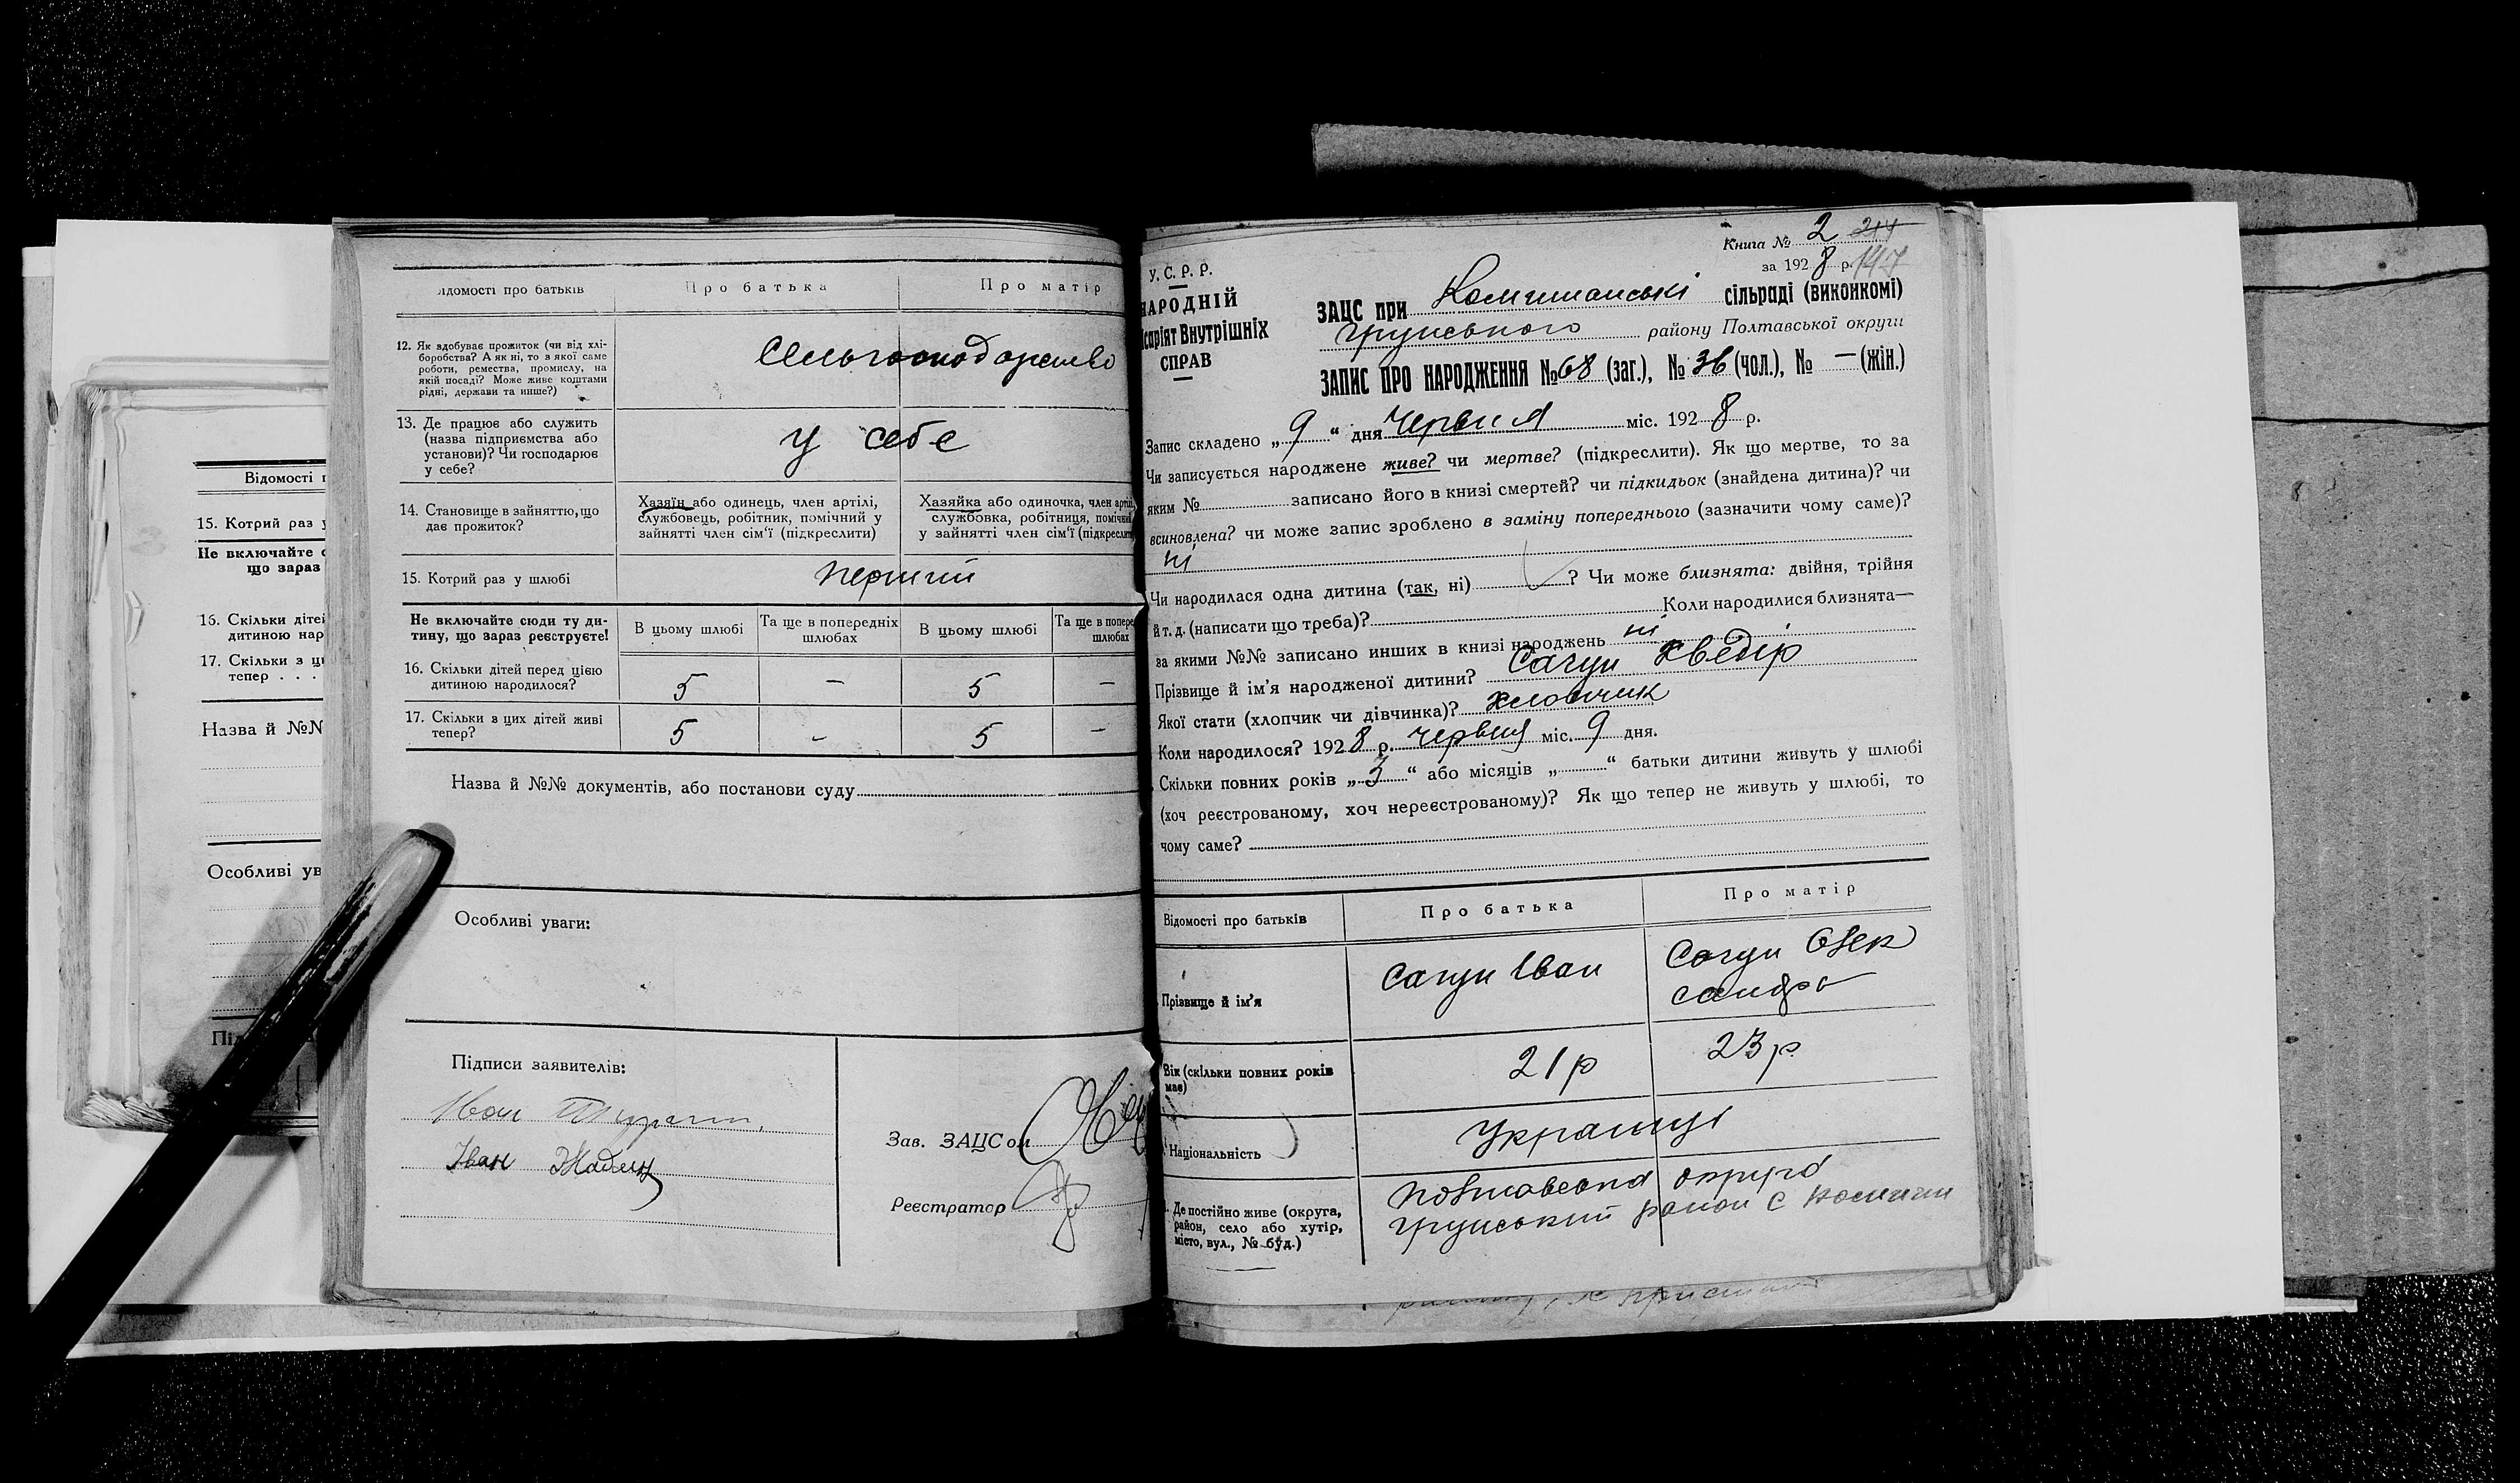 Відомості п
15. Котрий раз у
Не включайте с
що зараз
16. Скільки діте
дитиною нар
17. Скільки з ц
тепер . . .
Назва й №№
Особливі ув
Під
ідомості про батьків
Про батька
Про матір
12. Як здобуває прожиток (чи від хлі-
боробства? А як ні, то з якої саме
роботи, ремества, промислу, на
якій посаді? Може живе коштами
рідні, держави та инше?)
Сельгосподарство
13. Де працює або служить
(назва підприємства або
установи)? Чи господарює
у себе?
у себе
14. Становище в зайняттю, що
дає прожиток?
Хазяїн або одинець, член артілі,
службовець, робітник, помічний у
зайнятті член сім'ї (підкреслити)
Хазяйка або одиночка, член артіл
службовка, робітниця, помічни
у зайнятті член сім'ї (підкреслит
15. Котрий раз у шлюбі
перший
Не включайте сюди ту ди-
тину, що зараз реєструєте!
В цьому шлюбі
Та ще в попередніх
шлюбах
В цьому шлюбі
Та ще в попере
шлюбах
16. Скільки дітей перед цією
дитиною народилося?
5 — 5 —
17. Скільки з цих дітей живі
тепер?
5 - 5 -
Назва й №№ документів, або постанови суду
Особливі уваги:
Підписи заявителів:
Іван
Іван
Зав. ЗАЦСом
Реєстратор
Книга № 2 214
за 1928 р. 147
У. С. Р. Р.
НАРОДНІЙ
ісаріят Внутрішніх
СПРАВ
ЗАЦС при Комишанські сільраді (виконкомі)
Грунського району Полтавської округи
ЗАПИС ПРО НАРОДЖЕННЯ № 68 (заг.), № 36 (чол.), № — (жін.)
Запис складено „ 9 “ дня Червня міс. 1928 р.
Чи записується народжене живе? чи мертве? (підкреслити). Як що мертве, то за
яким № записано його в книзі смертей? чи підкидьок (знайдена дитина)? чи
всиновлена? чи може запис зроблено в заміну попереднього (зазначити чому саме)?
ні
Чи народилася одна дитина (так, ні) ? Чи може близнята: двійня, трійня
й т. д. (написати що треба)? Коли народилися близнята—
за якими №№ записано инших в книзі народжень ні
Прізвище й ім'я народженої дитини? Сагун Хведір
Якої стати (хлопчик чи дівчинка)? хлопчик
Коли народилося? 1928 р. червня міс. 9 дня.
Скільки повних років „ 3 “ або місяців „ “ батьки дитини живуть у шлюбі
(хоч реєстрованому, хоч нереєстрованому)? Як що тепер не живуть у шлюбі, то
чому саме?
Відомості про батьків
Про батька
Про матір
Прізвище й ім'я
Сагун Іван
Сагун Олек
сандра
Вік (скільки повних років
має)
21 р
23 р.
Національність
Українці
Де постійно живе (округа,
район, село або хутір,
місто, вул., № буд.)
Полтавська округа
Грунський район с Комиши